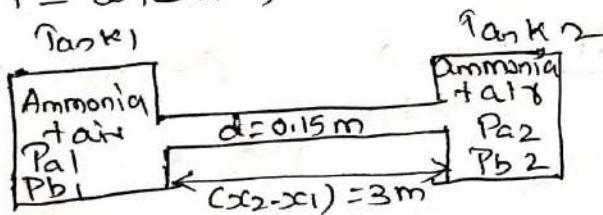 Tank 1
Tank 2
Ammonia
+ air
Pa1
Pb1
d = 0.15 m
(x2-x1) = 3m
ammonia
+ air
Pa2
Pb2